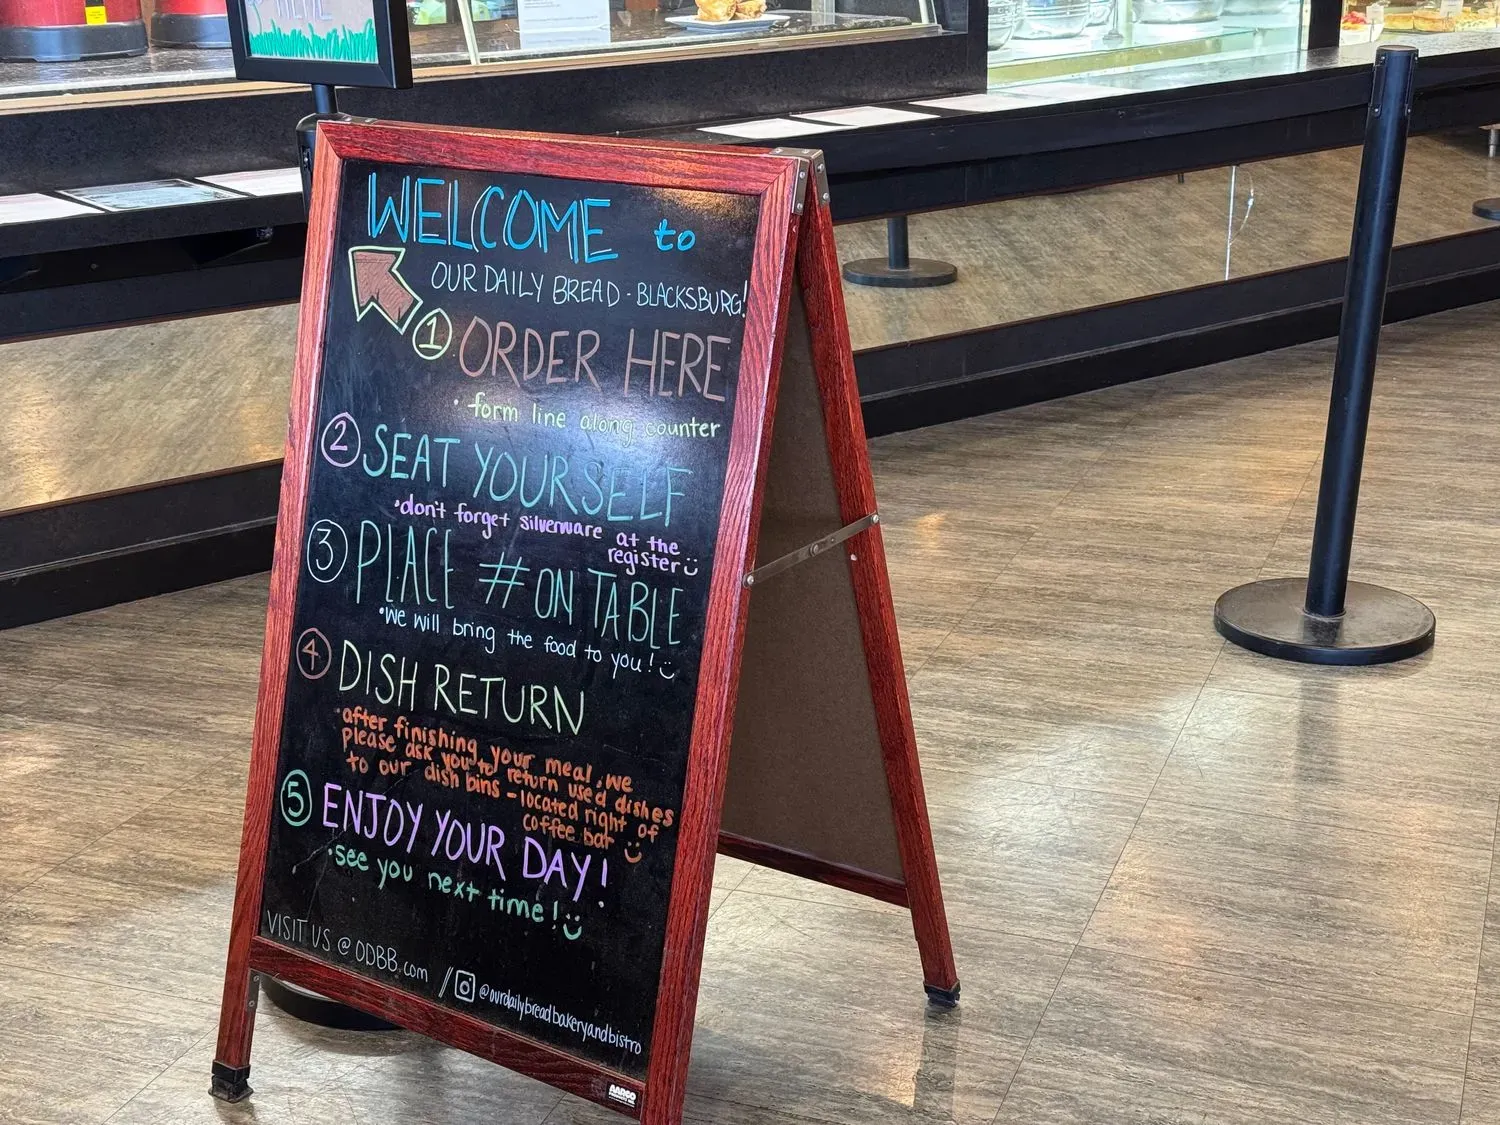 WELCOME to
OUR DAILY BREAD - BLACKSBURG!
1 ORDER HERE
• form line along counter
2 SEAT YOURSELF
• don't forget silverware at the
register
3 PLACE # ON TABLE
• We will bring the food to you!
4 DISH RETURN
after finishing your meal, we
please ask you to return used dishes
to our dish bins - located right of
coffee bar
5 ENJOY YOUR DAY!
• see you next time!
VISIT US @ ODBB.com / @ourdailybreadbakeryandbistro
AARCO